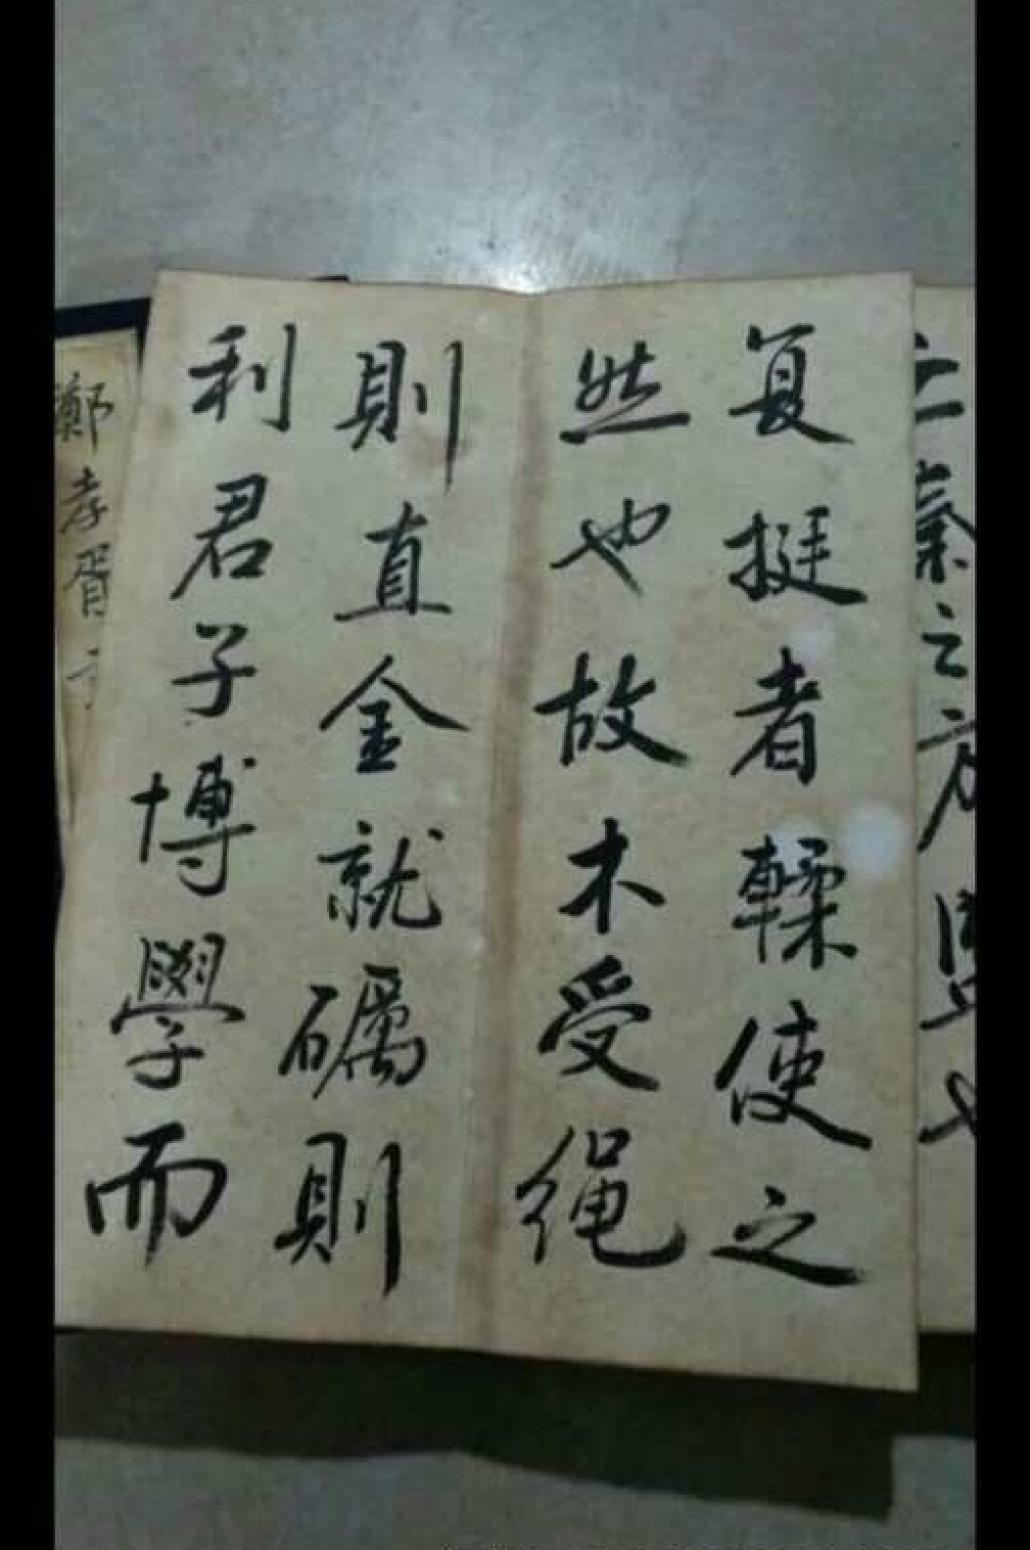 秦之
复挺者輮使之
然也故木受绳
則直金就礪則
利君子博學而
鄭孝胥